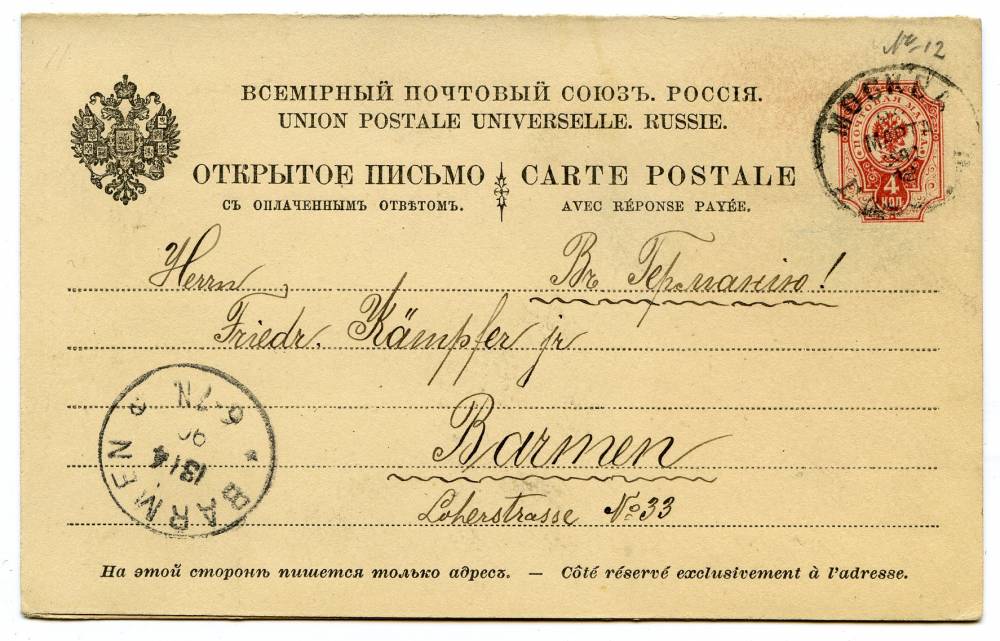 № 12
ВСЕМІРНЫЙ ПОЧТОВЫЙ СОЮЗЪ. РОССІЯ.
UNION POSTALE UNIVERSELLE. RUSSIE.
ОТКРЫТОЕ ПИСЬМО CARTE POSTALE
СЪ ОПЛАЧЕННЫМЪ ОТВѢТОМЪ. AVEC RÉPONSE PAYÉE.
МОСКВА
ПОЧТОВАЯ МАРКА
4
КОП
Herrn, Въ Германію!
Friedr. Kämpfer jr
Barmen
Loherstrasse № 33
BARMEN
13/4
90
6-7N
На этой сторонѣ пишется только адресъ. — Côté réservé exclusivement à l'adresse.